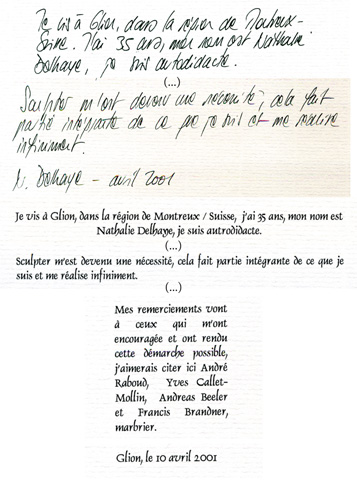 Je vis à Glion, dans la région de Montreux-
Suisse. J'ai 35 ans, mon nom est Nathalie
Delhaye, je suis autodidacte.
(...)
Sculpter m'est devenu une nécessité, cela fait
partie intégrante de ce que je suis et me réalise
infiniment.
N. Delhaye – avril 2001
Je vis à Glion, dans la région de Montreux / Suisse, j'ai 35 ans, mon nom est
Nathalie Delhaye, je suis autrodidacte.
(...)
Sculpter m'est devenu une nécessité, cela fait partie intégrante de ce que je
suis et me réalise infiniment.
(...)
Mes remerciements vont
à ceux qui m'ont
encouragée et ont rendu
cette démarche possible,
j'aimerais citer ici André
Raboud, Yves Callet-
Mollin, Andreas Beeler
et Francis Brandner,
marbrier.
Glion, le 10 avril 2001